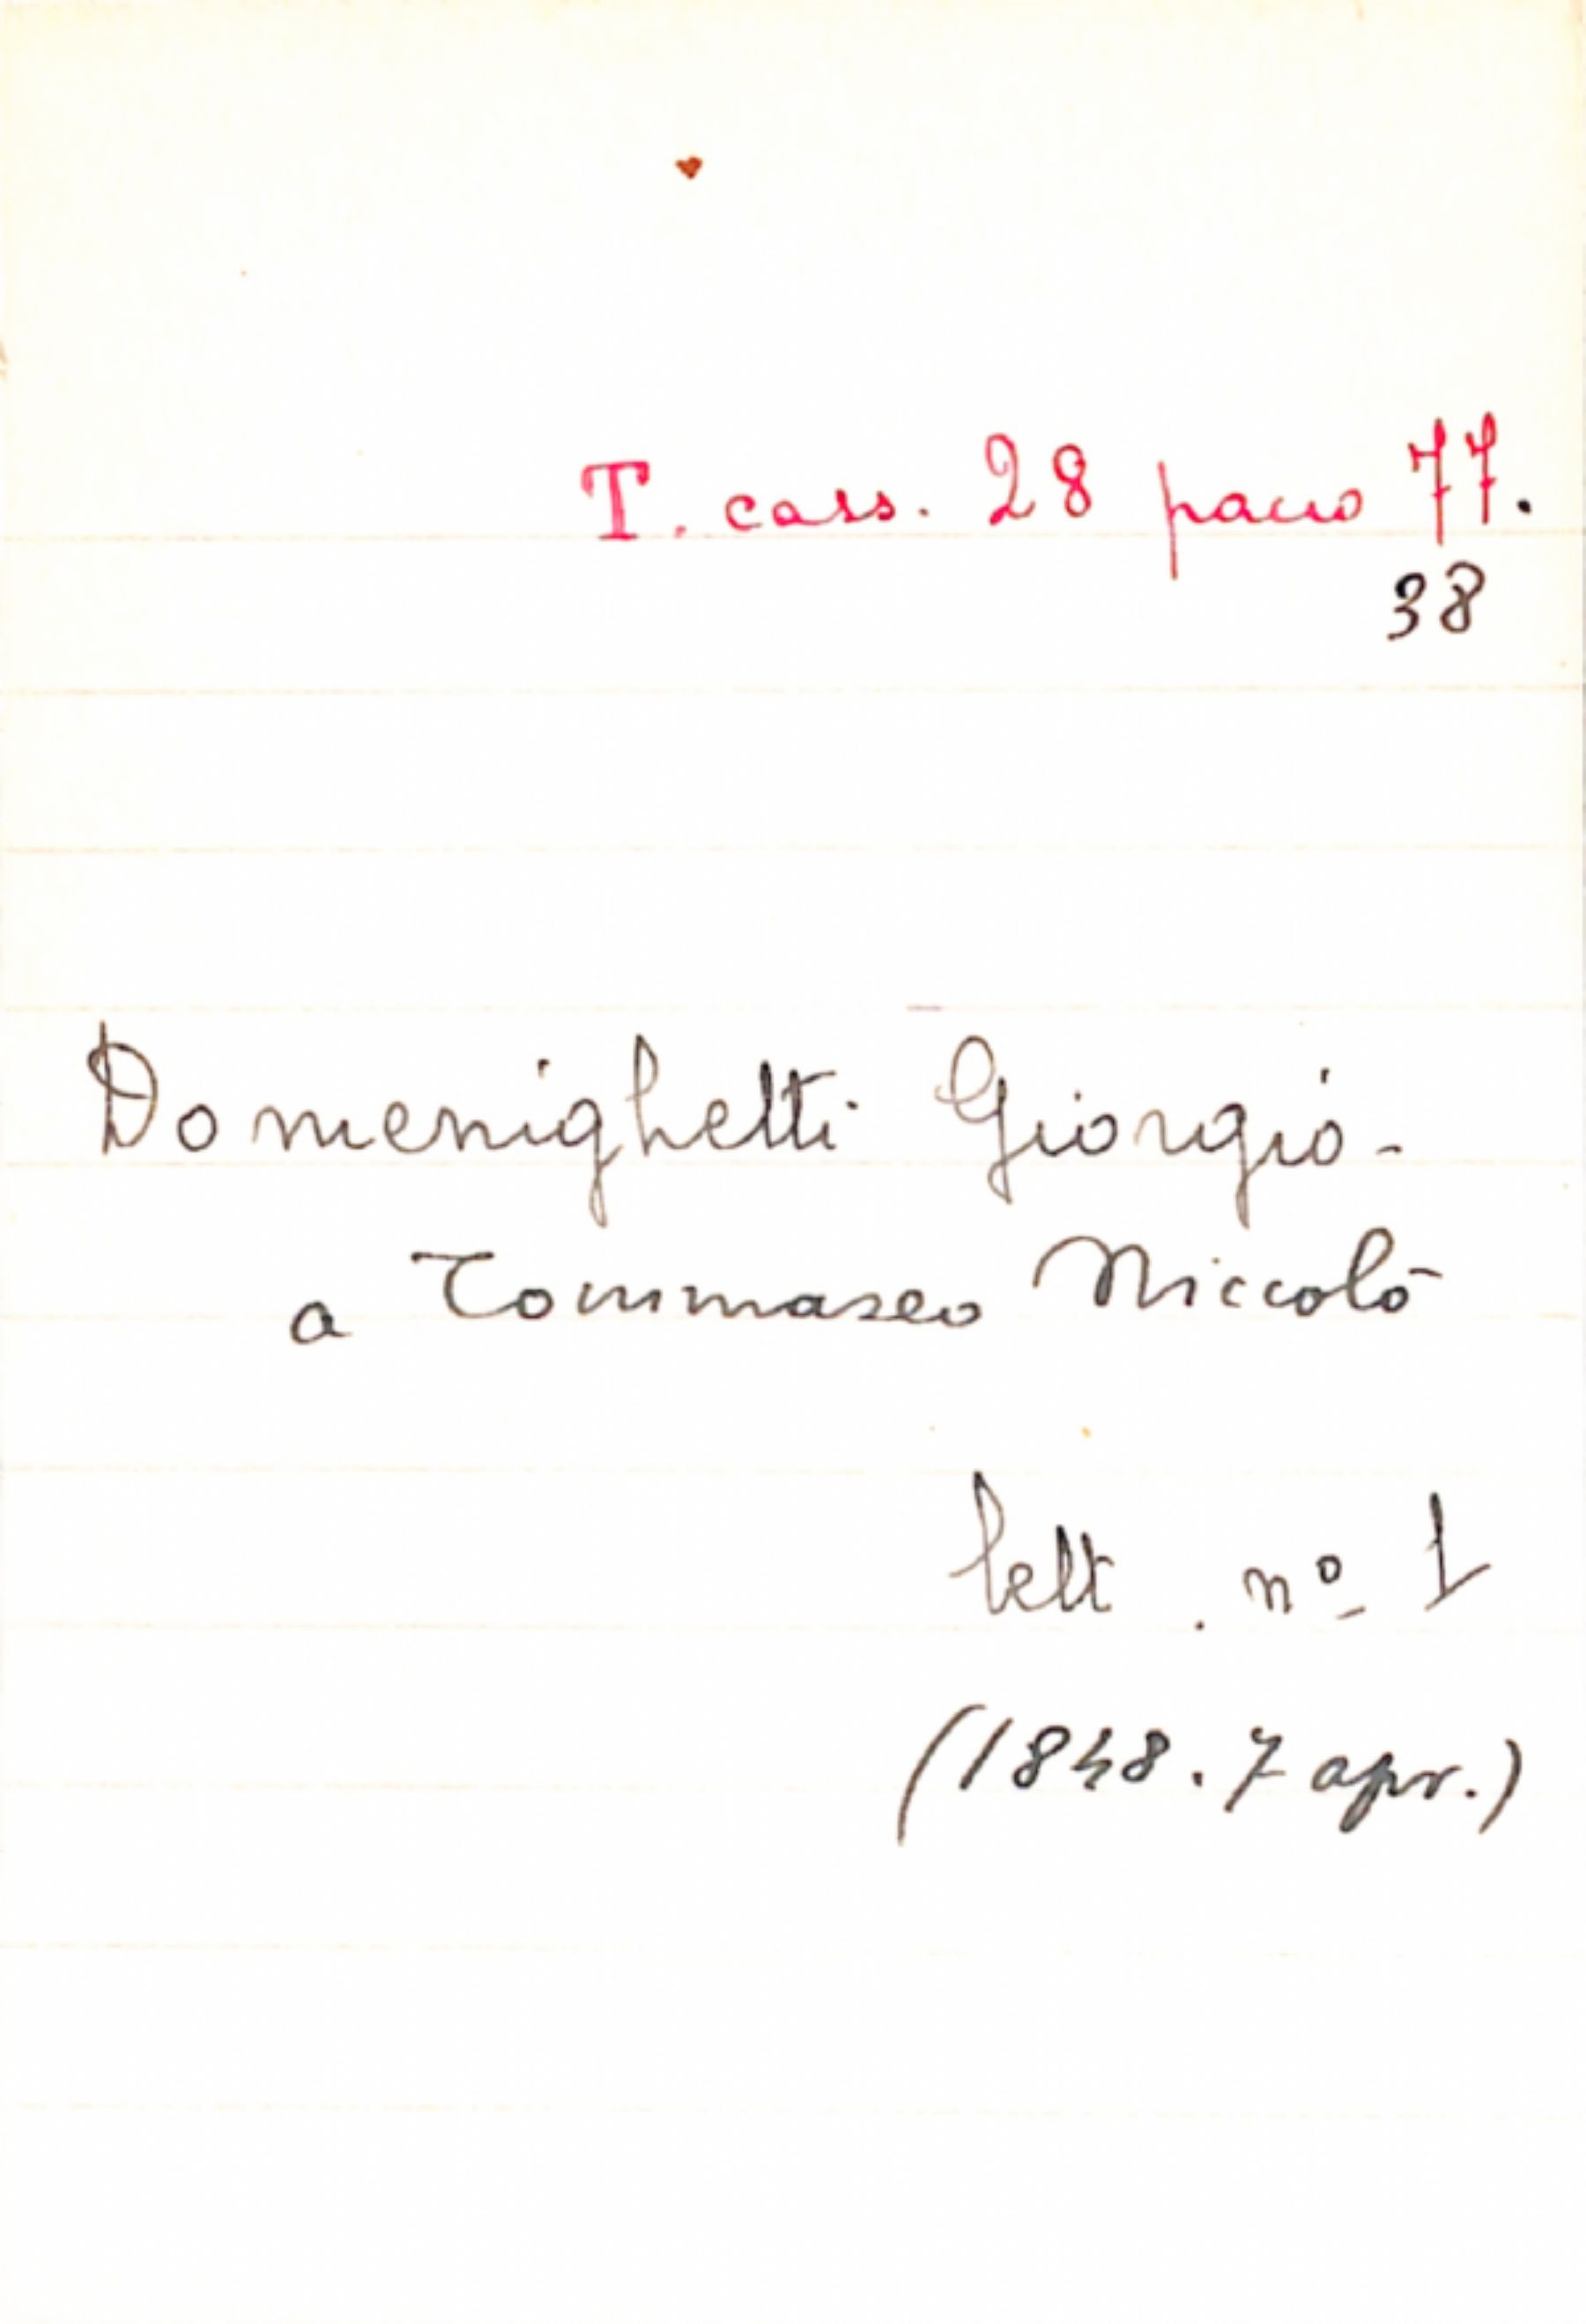 T. cass. 28 pacco 77.
38
Domenighetti Giorgio -
a Tommaseo Niccolò
lett. nº 1
(1848. 7 apr.)